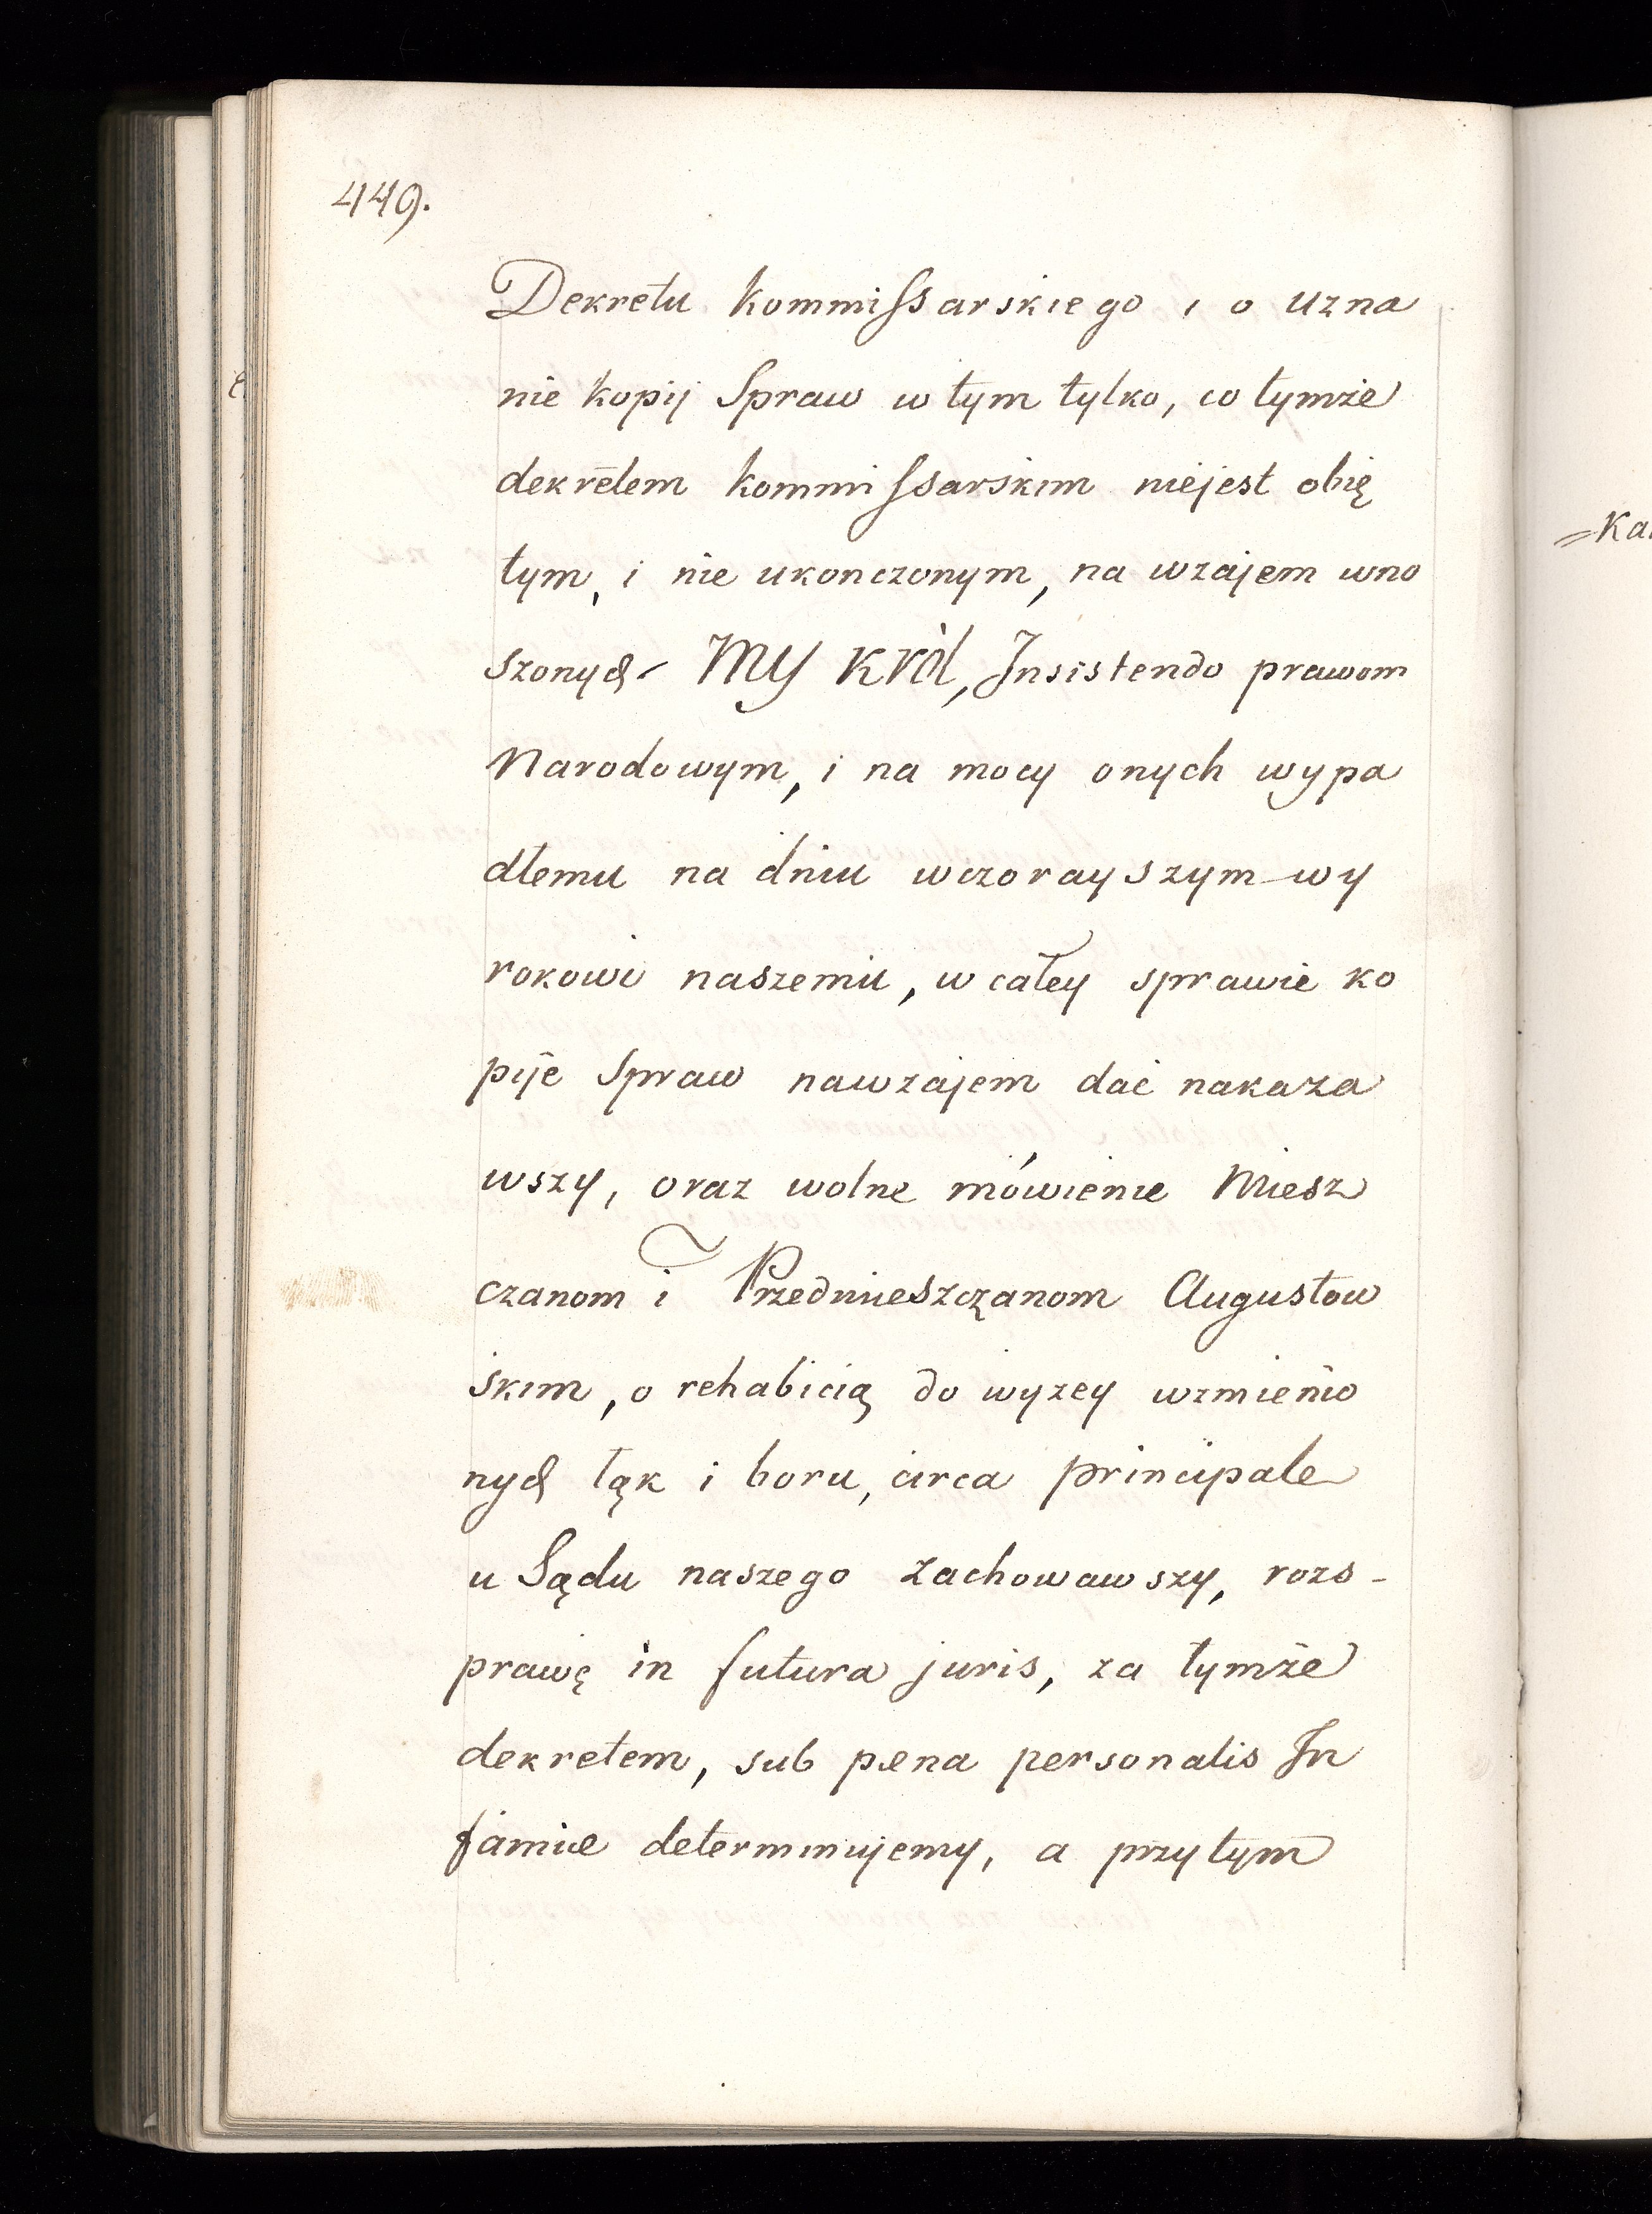 449.
Dekretu kommissarskiego i o uzna
nie kopij Spraw w tym tylko, co tymże
dekretem kommissarskim niejest obię
tym, i nie ukonczonym, na wzajem wno
szonych. My król, Insistendo prawom
Narodowym, i na mocy onych wypa
dłemu na dniu wczorayszym wy
rokowi naszemu, w całey sprawie ko
pije Spraw nawzajem dać nakaza
wszy, oraz wolne mówienie Miesz
czanom i Przedmieszczanom Augustow
skim, o rehabicią do wyzey wzmienio
nych łąk i boru, circa principale
u Sądu naszego zachowawszy, rozs-
prawę in futura juris, za tymże
dekretem, sub pæna personalis In
famiæ determinujemy, a przytym
=Ka